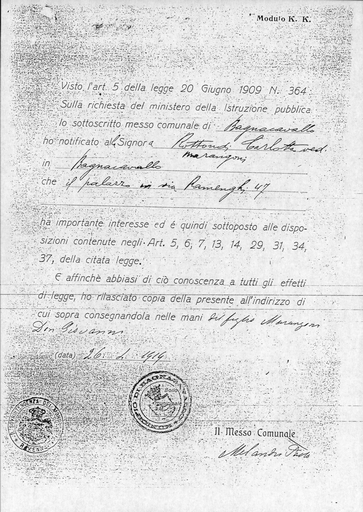 Modulo K. K.
Visto l'art. 5 della legge 20 Giugno 1909 N. 364:
Sulla richiesta del ministero della Istruzione pubblica
Io sottoscritto messo comunale di Bagnacavallo
ho notificato al Signora Rottondi Carlotta ved.
Marangoni
in Bagnacavallo
che il palazzo in via Ramenghi 47
ha importante interesse ed é quindi sottoposto alle dispo-
sizioni contenute negli Art. 5, 6, 7, 13, 14, 29, 31, 34,
37, della citata legge.
E affinchè abbiasi di ciò conoscenza a tutti gli effetti
di legge, ho rilasciato copia della presente all'indirizzo di
cui sopra consegnandola nelle mani del figlio Marangoni
Don Giovanni
(data) 26. 2. 1919
Il Messo Comunale